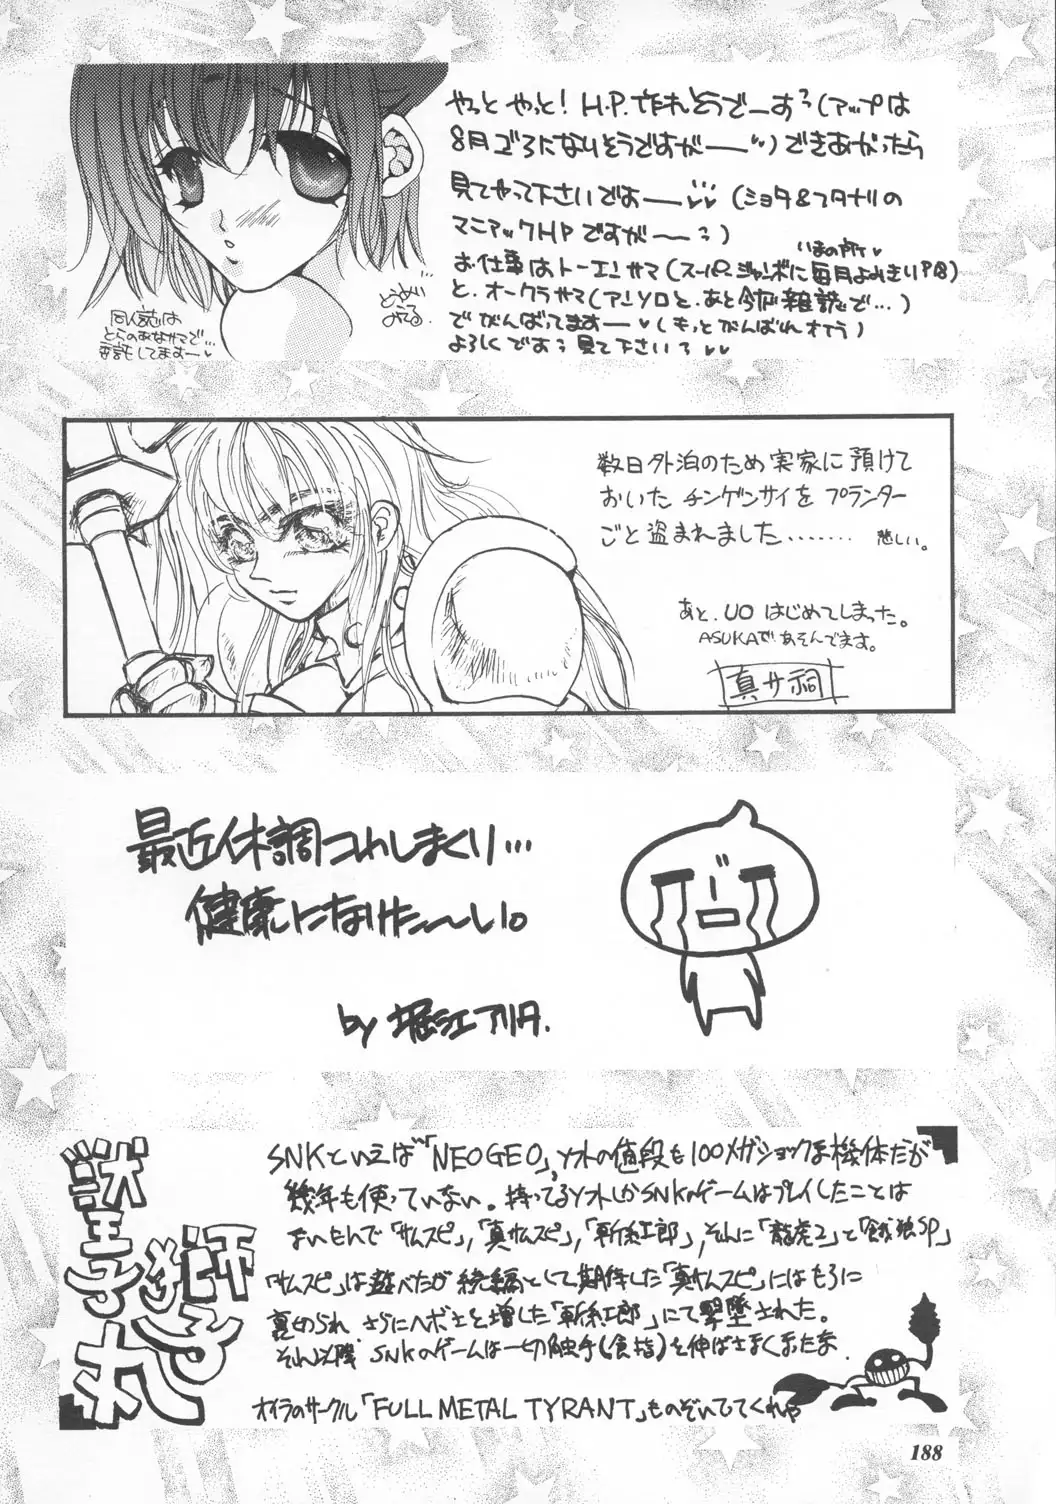 やっと やっと! H.P. 作れそうでーす(アップは
8月ゴロになりそうですがー)できあがったら
見てやって下さいですおー (ショタ&フタナリの
マニアックHPですがー)
いまの所
お仕事はトーエンサマ(スーパージャンボに毎月よみきりP8)
と、オークラサマ(アンソロと、あと今度雑誌で…)
でがんばってますー (もっとがんばんオイラ)
よろしくです 見て下さい
同人誌は
とらのあなサマで…
委託してますー
数日外泊のため実家に預けて
おいた チンゲンサイを プランター
ごと盗まれました……… 悲しい。
あと、UO はじめてしまった。
ASUKAであそんでます。
真サ祠
最近体調つれしまくり…
健康になりた〜い。
by 堀江アリタ.
獣王子獅子丸
SNKといえば「NEOGEO」、ソフトの値段も100メガショックな機体だが
幾年も使っていない。持ってるソフトしかSNKのゲームはプレイしたことは
ないもんで「サムスピ」,「真サムスピ」,「斬紅郎」,それに「龍虎2」と「餓狼SP」
「サムスピ」は遊べたが続編として期待した「真サムスピ」にはもろに
裏切られ さらにヘボさを増した「斬紅郎」にて撃墜された。
それ以降 SNKのゲームは一切触手(食指)を伸ばさなくなったな
オイラのサークル「FULL METAL TYRANT」ものぞいててくれや
188